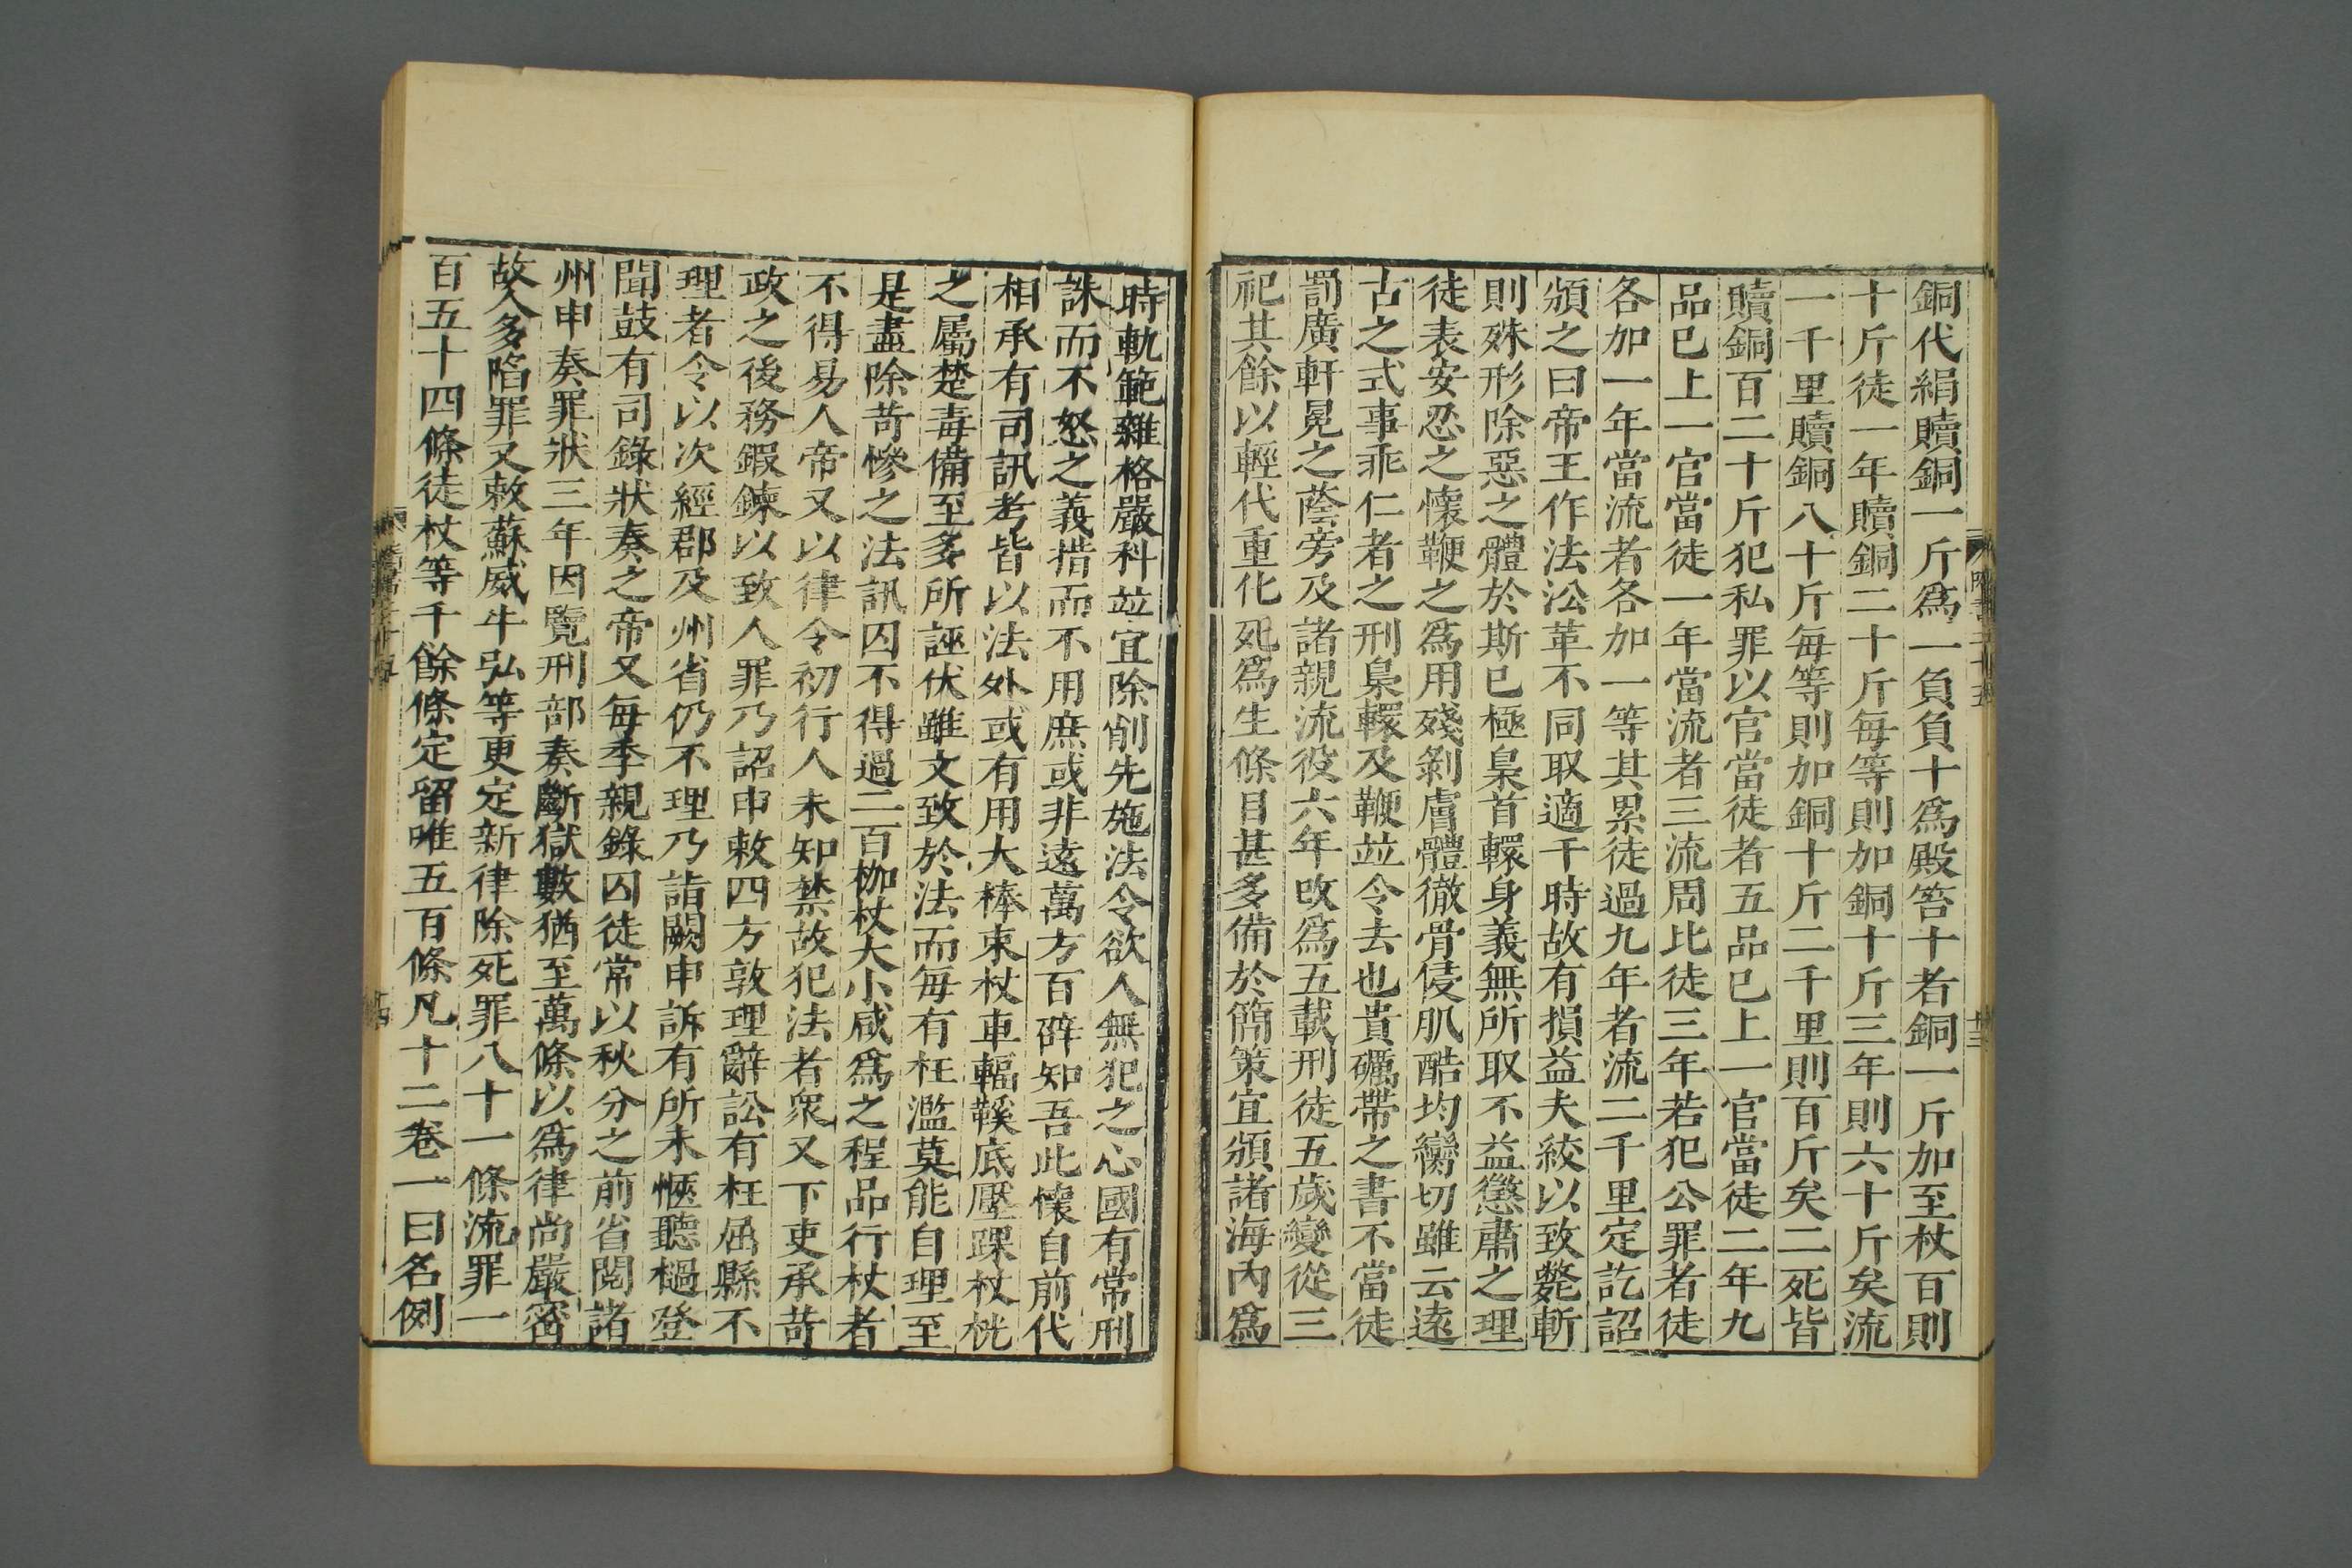 銅代絹贖銅一斤爲一負負十爲殿笞十者銅一斤加至杖百則
十斤徒一年贖銅二十斤每等則加銅十斤三年則六十斤矣流
一千里贖銅八十斤每等則加銅十斤二千里則百斤矣二死皆
贖銅百二十斤犯私罪以官當徒者五品已上一官當徒二年九
品已上一官當徒一年當流者三流周比徒三年若犯公罪者徒
各加一年當流者各加一等其累徒過九年者流二千里定訖詔
頒之曰帝王作法沿革不同取適于時故有損益夫絞以致斃斬
則殊形除惡之體於斯已極梟首轘身義無所取不益懲肅之理
徒表安忍之懷鞭之爲用殘剝膚體徹骨侵肌酷均臠切雖云遠
古之式事乖仁者之刑梟轘及鞭竝令去也貴礪帶之書不當徒
罰廣軒冕之蔭旁及諸親流役六年改爲五載刑徒五歲變從三
祀其餘以輕代重化死爲生條目甚多備於簡策宜頒諸海內爲
時軌範雜格嚴科竝宜除削先施法令欲人無犯之心國有常刑
誅而不怒之義措而不用庶或非遠萬方百辟知吾此懷自前代
相承有司訊考皆以法外或有用大棒束杖車輻鞵底壓踝杖桄
之屬楚毒備至多所誣伏雖文致於法而每有枉濫莫能自理至
是盡除苛慘之法訊囚不得過二百枷杖大小咸爲之程品行杖者
不得易人帝又以律令初行人未知禁故犯法者衆又下吏承苛
政之後務鍛鍊以致人罪乃詔申敕四方敦理辭訟有枉屈縣不
理者令以次經郡及州省仍不理乃詣闕申訴有所未愜聽檛登
聞鼓有司錄狀奏之帝又每季親錄囚徒常以秋分之前省閱諸
州申奏罪狀三年因覽刑部奏斷獄數猶至萬條以爲律尚嚴密
故人多陷罪又敕蘇威牛弘等更定新律除死罪八十一條流罪一
百五十四條徒杖等千餘條定留唯五百條凡十二卷一曰名例